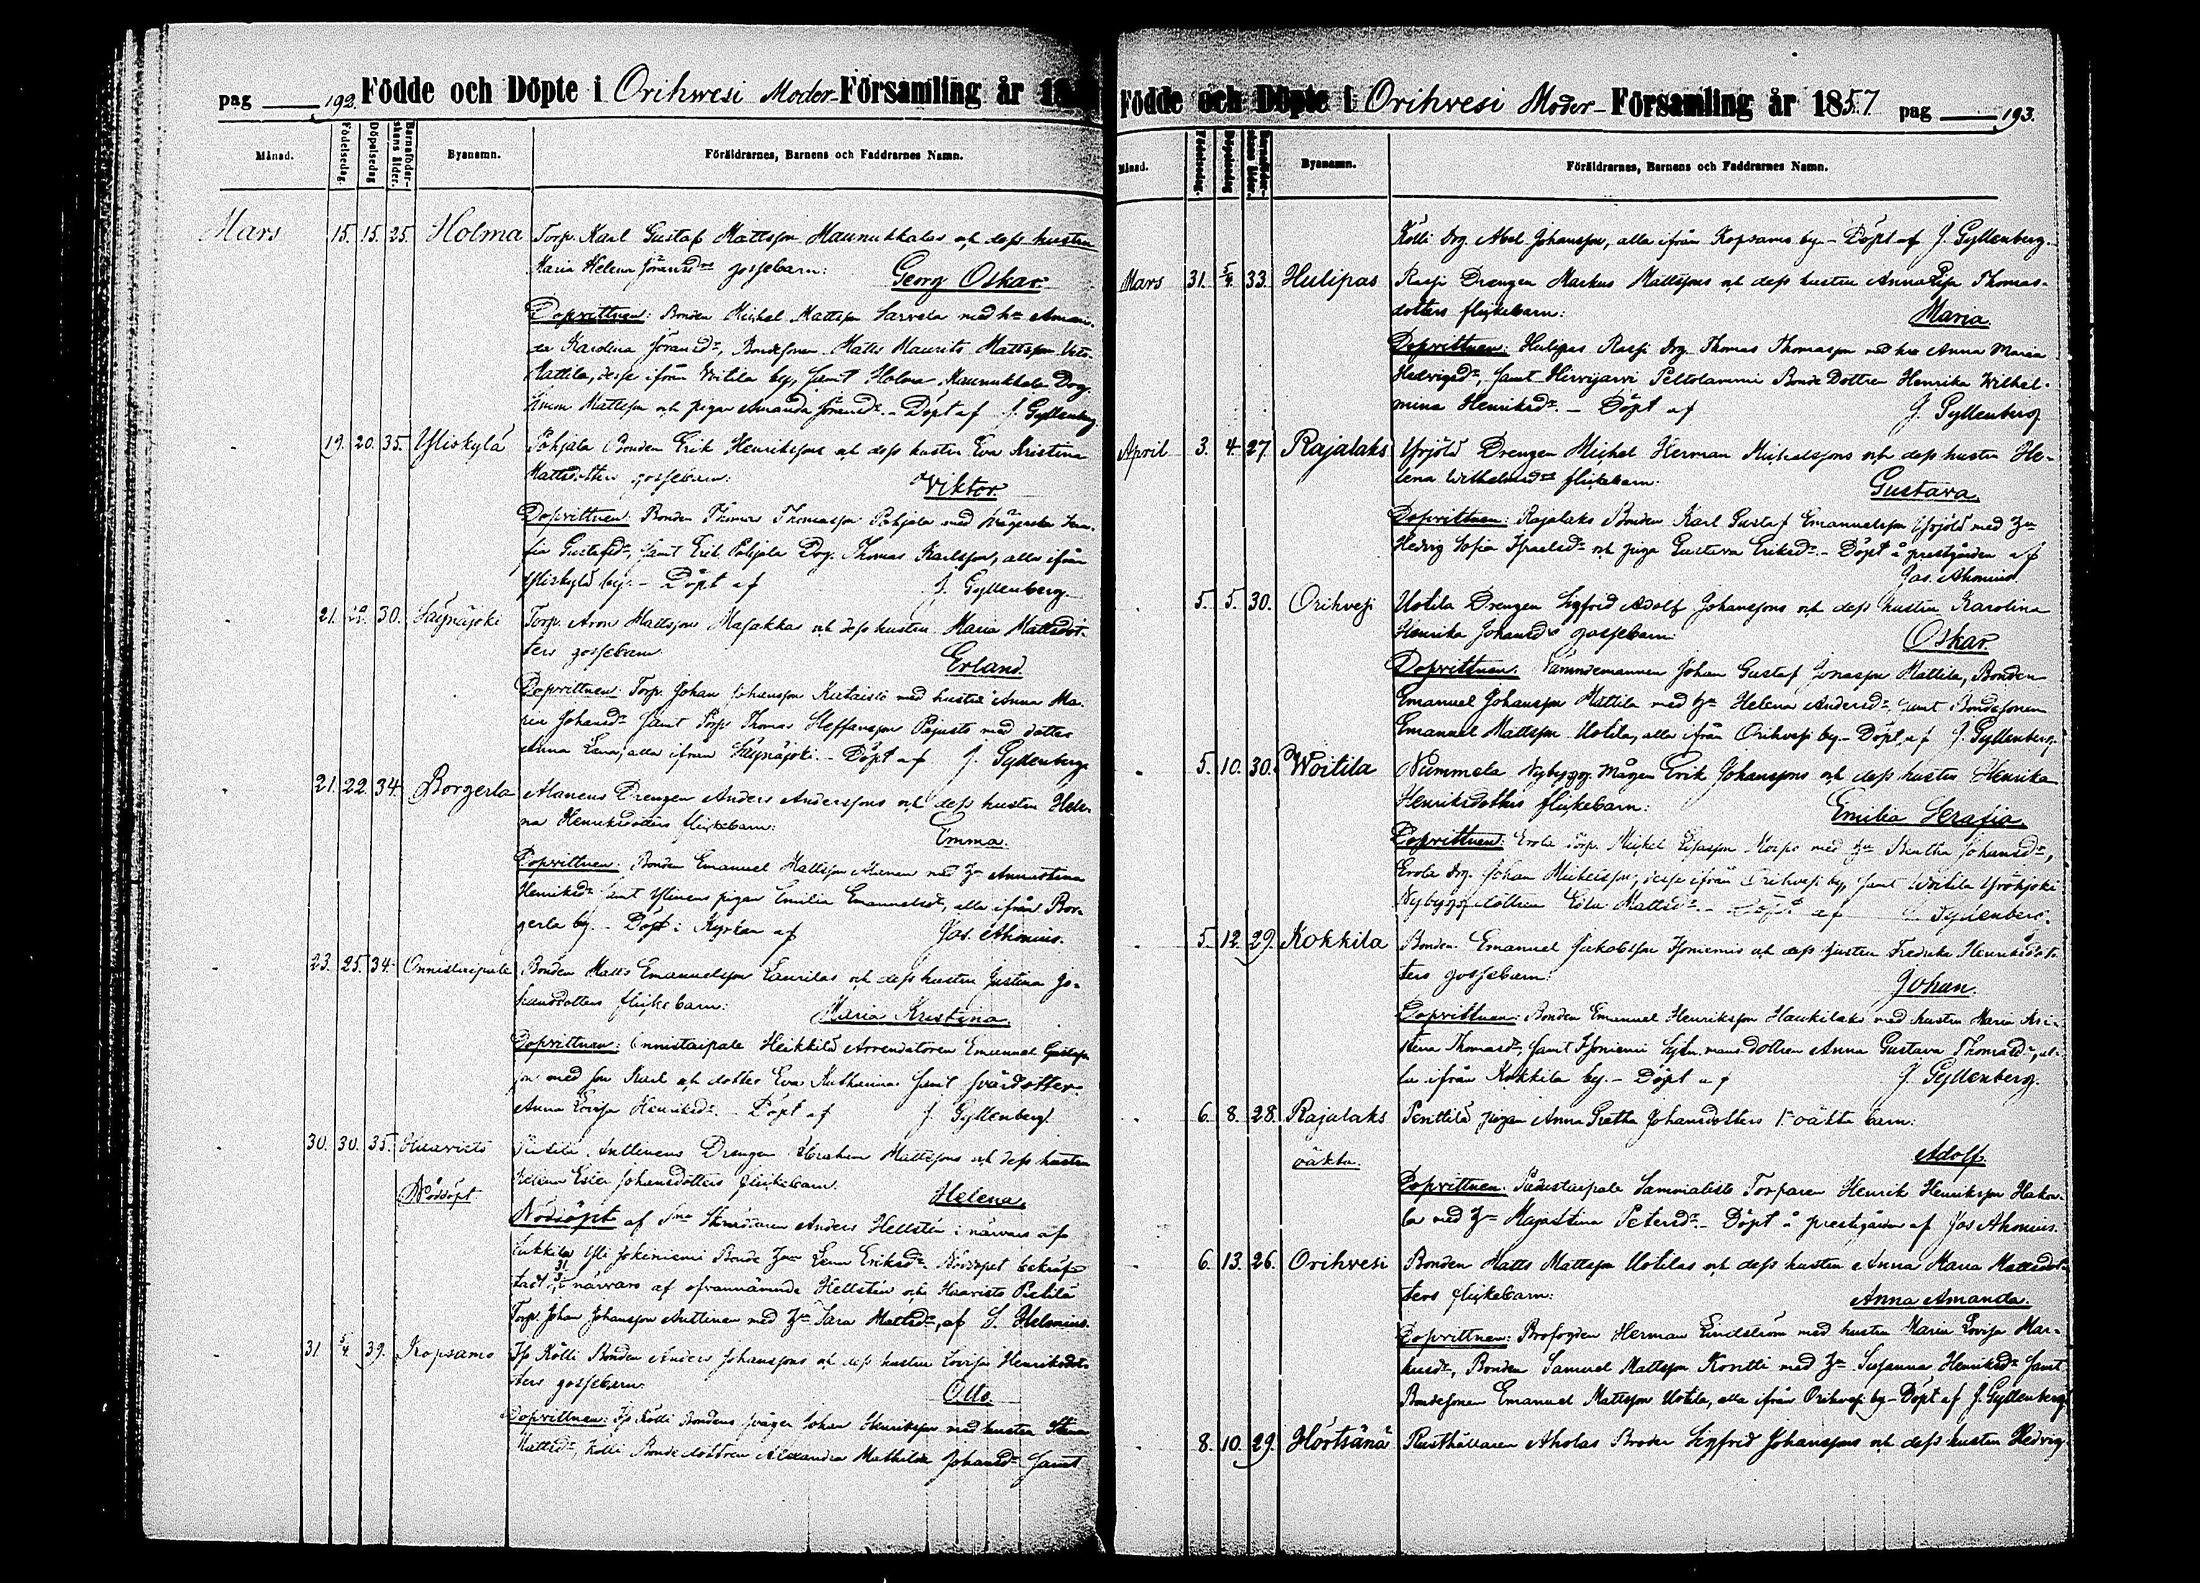 pag 192. Födde och Döpte i Orihwesi Moder-Församling år 18
Månad. Födelsedag. Döpelsedag Barnaföderskans ålder. Bysnamn. Föräldrarnes, Barnens och Faddrarnes Namn.
Mars 15. 15. 25. Holma Torp. Karl Gustaf Mattsson Maunukkalas och dess hustru
Maria Helena Göransdrs gossebarn: Georg Oskar.
Dopvittnen: Bonden Michel Mattsson Sarvela med hu Aman-
da Karolina Göransdr, Bondesonen Matts Maurits Mattsson Uto-
Mattila, desse ifrån Woitila by, samt Holma Maunukkala Drg.
Simon Mattsson och pigan Amanda Göransdr. - Döpt af J. Gyllenberg
19. 20. 35. Yliskylä Pohjala Bonden Erik Henrikssons och dess hustru Eva Kristina
Mattsdotters gossebarn: Viktor.
Dopvittnen: Bonden Thomas Thomasson Pohjala med
fia Gustafsdr, samt Erik Pohjala Drg. Thomas Karlsson, alla ifrån
Yliskylä by. - Döpt af J. Gyllenberg.
21. 22. 30. Säynäjoki Torp. Aron Mattssons Masakkas och dess hustru Maria Mattsdot-
ters gossebarn Erland.
Dopvittnen: Torp. Johan Johansson Kataisto med hustru Anna Ma-
ria Johansdr samt Torp. Thomas Steffansson Pajusto med dotter
Anna Lena, alla ifrån Säynäjoki. - Döpt af J. Gyllenberg
21. 22. 34. Borgerla Alanens Drengen Anders Anderssons och dess hustru Hele-
na Henriksdotters flickebarn: Emma.
Dopvittnen: Bonden Emanuel Mattsson Alanen med hu Annastina
Henriksdr samt Ylinens pigan Emilia Emanuelsdr, alla ifrån Bor-
gerla by. - Döpt i Kyrkan af Jos. Ahonius.
23. 25. 34. Onnistaipale Bonden Matts Emanuelsson Laurilas och dess hustru Justina Jo-
hansdotters flickebarn: Maria Kristina.
Dopvittnen: Onnistaipale Heikkilä Arrendatoren Emanuel Gustafs-
son med son Karl och dotter Eva Katharina samt svärdotter
Anna Lovisa Henriksdr. - Döpt af J. Gyllenberg.
30. 30. 35. Haavisto Pietilä Anttinens Drengen Abraham Mattssons och dess hustru
Nöddöpt Helena Ester Johansdotters flickebarn. Helena.
Nöddöpt af Sme Skräddaren Anders Hellstén i närvaro af
Sukkila Yli Jokiniemi Bonde hu Lena Eriksdr. Nöddopet bekräf-
tadt 31/3 i närvaro af ofvannämnde Hellstén och Haavisto Pietilä
Torp. Johan Johansson Anttinen med hu Sara Mattsdr, af S. Helenius.
31 5/4 39. Kopsamo Iso Kölli Bonden Anders Johanssons och dess hustru Lovisa Henriksdot-
ters gossebarn. Otto.
Dopvittnen: Iso Kölli Bondens svåger Johan Henriksson med hustru Stina
Mattsdr, Kölli Bonde dottren Alexandra Mathilda Johansdr samt
Födde och Döpte i Orihvesi Moder-Församling år 1857 pag 193.
Månad. Födelsedag. Döpelsedag Barnaföderskans ålder. Bysnamn. Föräldrarnes, Barnens och Faddrarnes Namn.
Kölli Drg. Abel Johansson, alla ifrån Kopsamo by - Döpt af J. Gyllenberg.
Mars 31. 5/4 33. Hulipas Rasi Drengen Markus Mattssons och dess hustru Anna Lisa Thomas-
dotters flickebarn: Maria.
Dopvittnen: Hulipas Rasi Drg. Thomas Thomasson med hu Anna Maria
Hedvigsdr, samt Hirvijärvi Peltolammi Bonde Dottren Henrika Wilhel-
mina Henriksdr. - Döpt af J. Gyllenberg
April 3. 4. 27. Rajalaks Yrjölä Drengen Michel Herman Michelssons och dess hustru He-
lena Wilhelmsdrs flickebarn: Gustava.
Dopvittnen: Rajalaks Bonden Karl Gustaf Emanuelsson Yrjölä med hu
Hedvig Sofia Israelsdr och piga Gustava Eriksdr. - Döpt å prestgården af
Jos. Ahonius.
5. 5. 30. Orihvesi Uotila Drengen Sigfrid Adolf Johanssons och dess hustru Karolina
Henrika Johansdrs gossebarn: Oskar.
Dopvittnen: Nämndemannen Johan Gustaf Jonasson Mattila, Bonden
Emanuel Johansson Mattila med hu Helena Andersdr, samt Bondesonen
Emanuel Mattsson Uotila, alla ifrån Orihvesi by. - Döpt af J. Gyllenberg.
5. 10. 30. Woitila Nummela Nybygg. Mågen Erik Johanssons och dess hustru Henrika
Henriksdotters flickebarn: Emilia Serafia.
Dopvittnen: Erola Torp. Michel Esasson Korpi med hu Bertha Johansdr,
Erola Drg. Johan Michelsson, desse ifrån Orihvesi by, samt Woitila Yröhjoki
Nybygg. dottren Edla Mattsdr. - Döpt af J. Gyllenberg.
5. 12. 29. Kokkila Bonden Emanuel Jakobsson Isoniemis och dess hustru Fredrika Henriksdot-
ters gossebarn: Johan.
Dopvittnen: Bonden Emanuel Henriksson Haukilaks med hustru Maria Kri-
stina Thomasdr, samt Isoniemi dottren Anna Gustava Thomasdr, al-
la ifrån Kokkila by. - Döpt af J. Gyllenberg.
6. 8. 28. Rajalaks Penttilä pigan Anna Greta Johansdotters 1a oäkta barn:
oäkta. Adolf.
Dopvittnen: Padustaipale Sammalisto Torparen Henrik Henriksson Hako-
la med hu Majastina Petersdr. - Döpt å prestgården af Jos Ahonius.
6. 13. 26. Orihvesi Bonden Matts Mattsson Uotilas och dess hustru Anna Maria Mattsdot-
ters flickebarn: Anna Amanda.
Dopvittnen: Brofogden Herman Lindström med hustru Maria Lovisa Mar-
kusdr, Bonden Samuel Mattsson Koritti med hu Susanna Henriksdr samt
Bondesonen Emanuel Mattsson Uotila, alla ifrån Orihvesi by - Döpt af J. Gyllenberg.
8. 10. 29. Hörtsänä Rusthållaren Aholas Broder Sigfrid Johanssons och dess hustru Hedvig